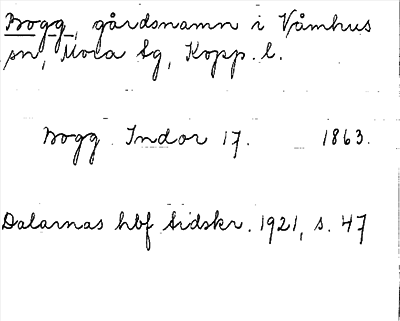 Bogg, gårdsnamn i Våmhus
sn, Mora tg, Kopp. l.
Bogg Indor 17. 1863.
Dalarnas hbf tidskr. 1921, s. 47